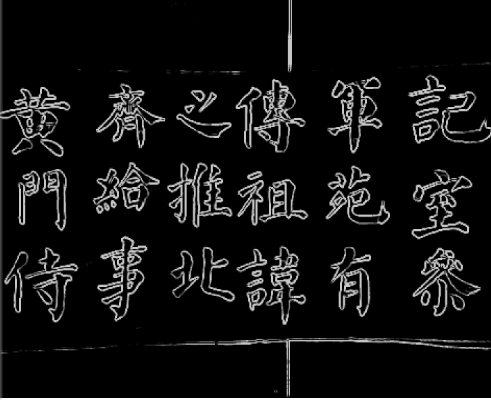 記室參
軍苑有
傳祖諱
之推北
齊給事
黃門侍